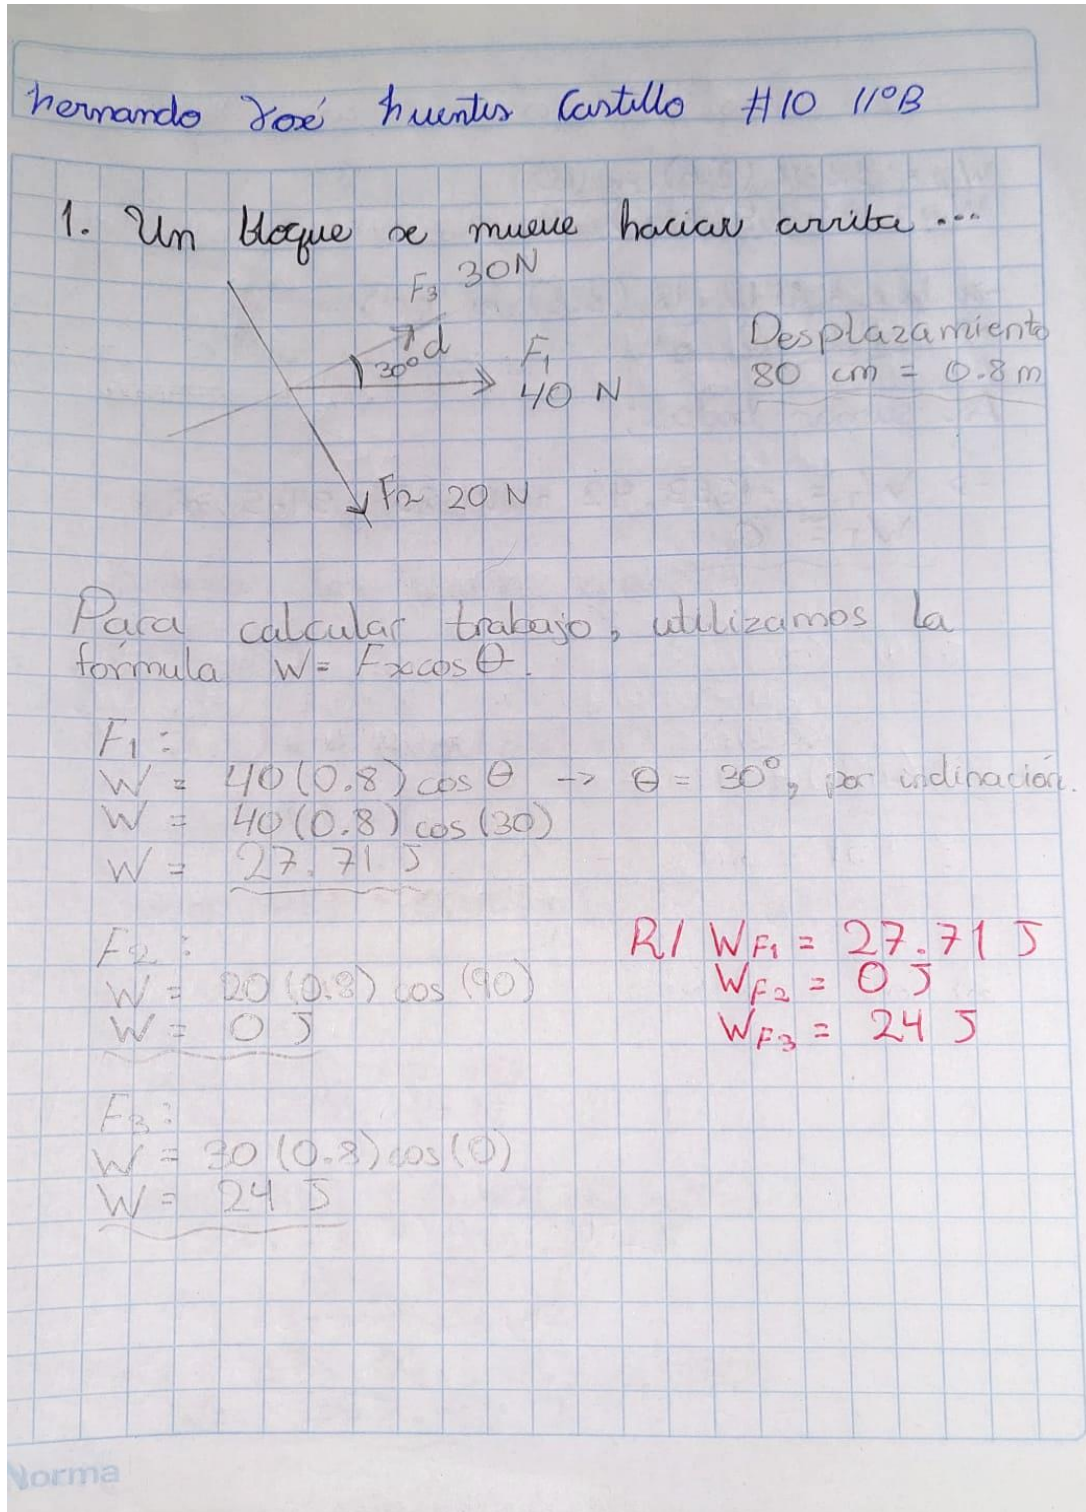 hernando José huentes Castillo #10 11°B
1. Un bloque se mueve haciar arriba ...
F3 30N
d
30°
F1
40 N
Desplazamiento
80 cm = 0.8 m
F2 20 N
Para calcular trabajo, utilizamos la
fórmula W = Fxcos θ.
F1 :
W = 40(0.8) cos θ -> θ = 30°, por inclinación.
W = 40(0.8) cos (30)
W = 27.71 J
F2 :
W = 20(0.8) cos (90)
W = 0 J
R/ WF1 = 27.71 J
WF2 = 0 J
WF3 = 24 J
F3 :
W = 30(0.8) cos (0)
W = 24 J
Norma